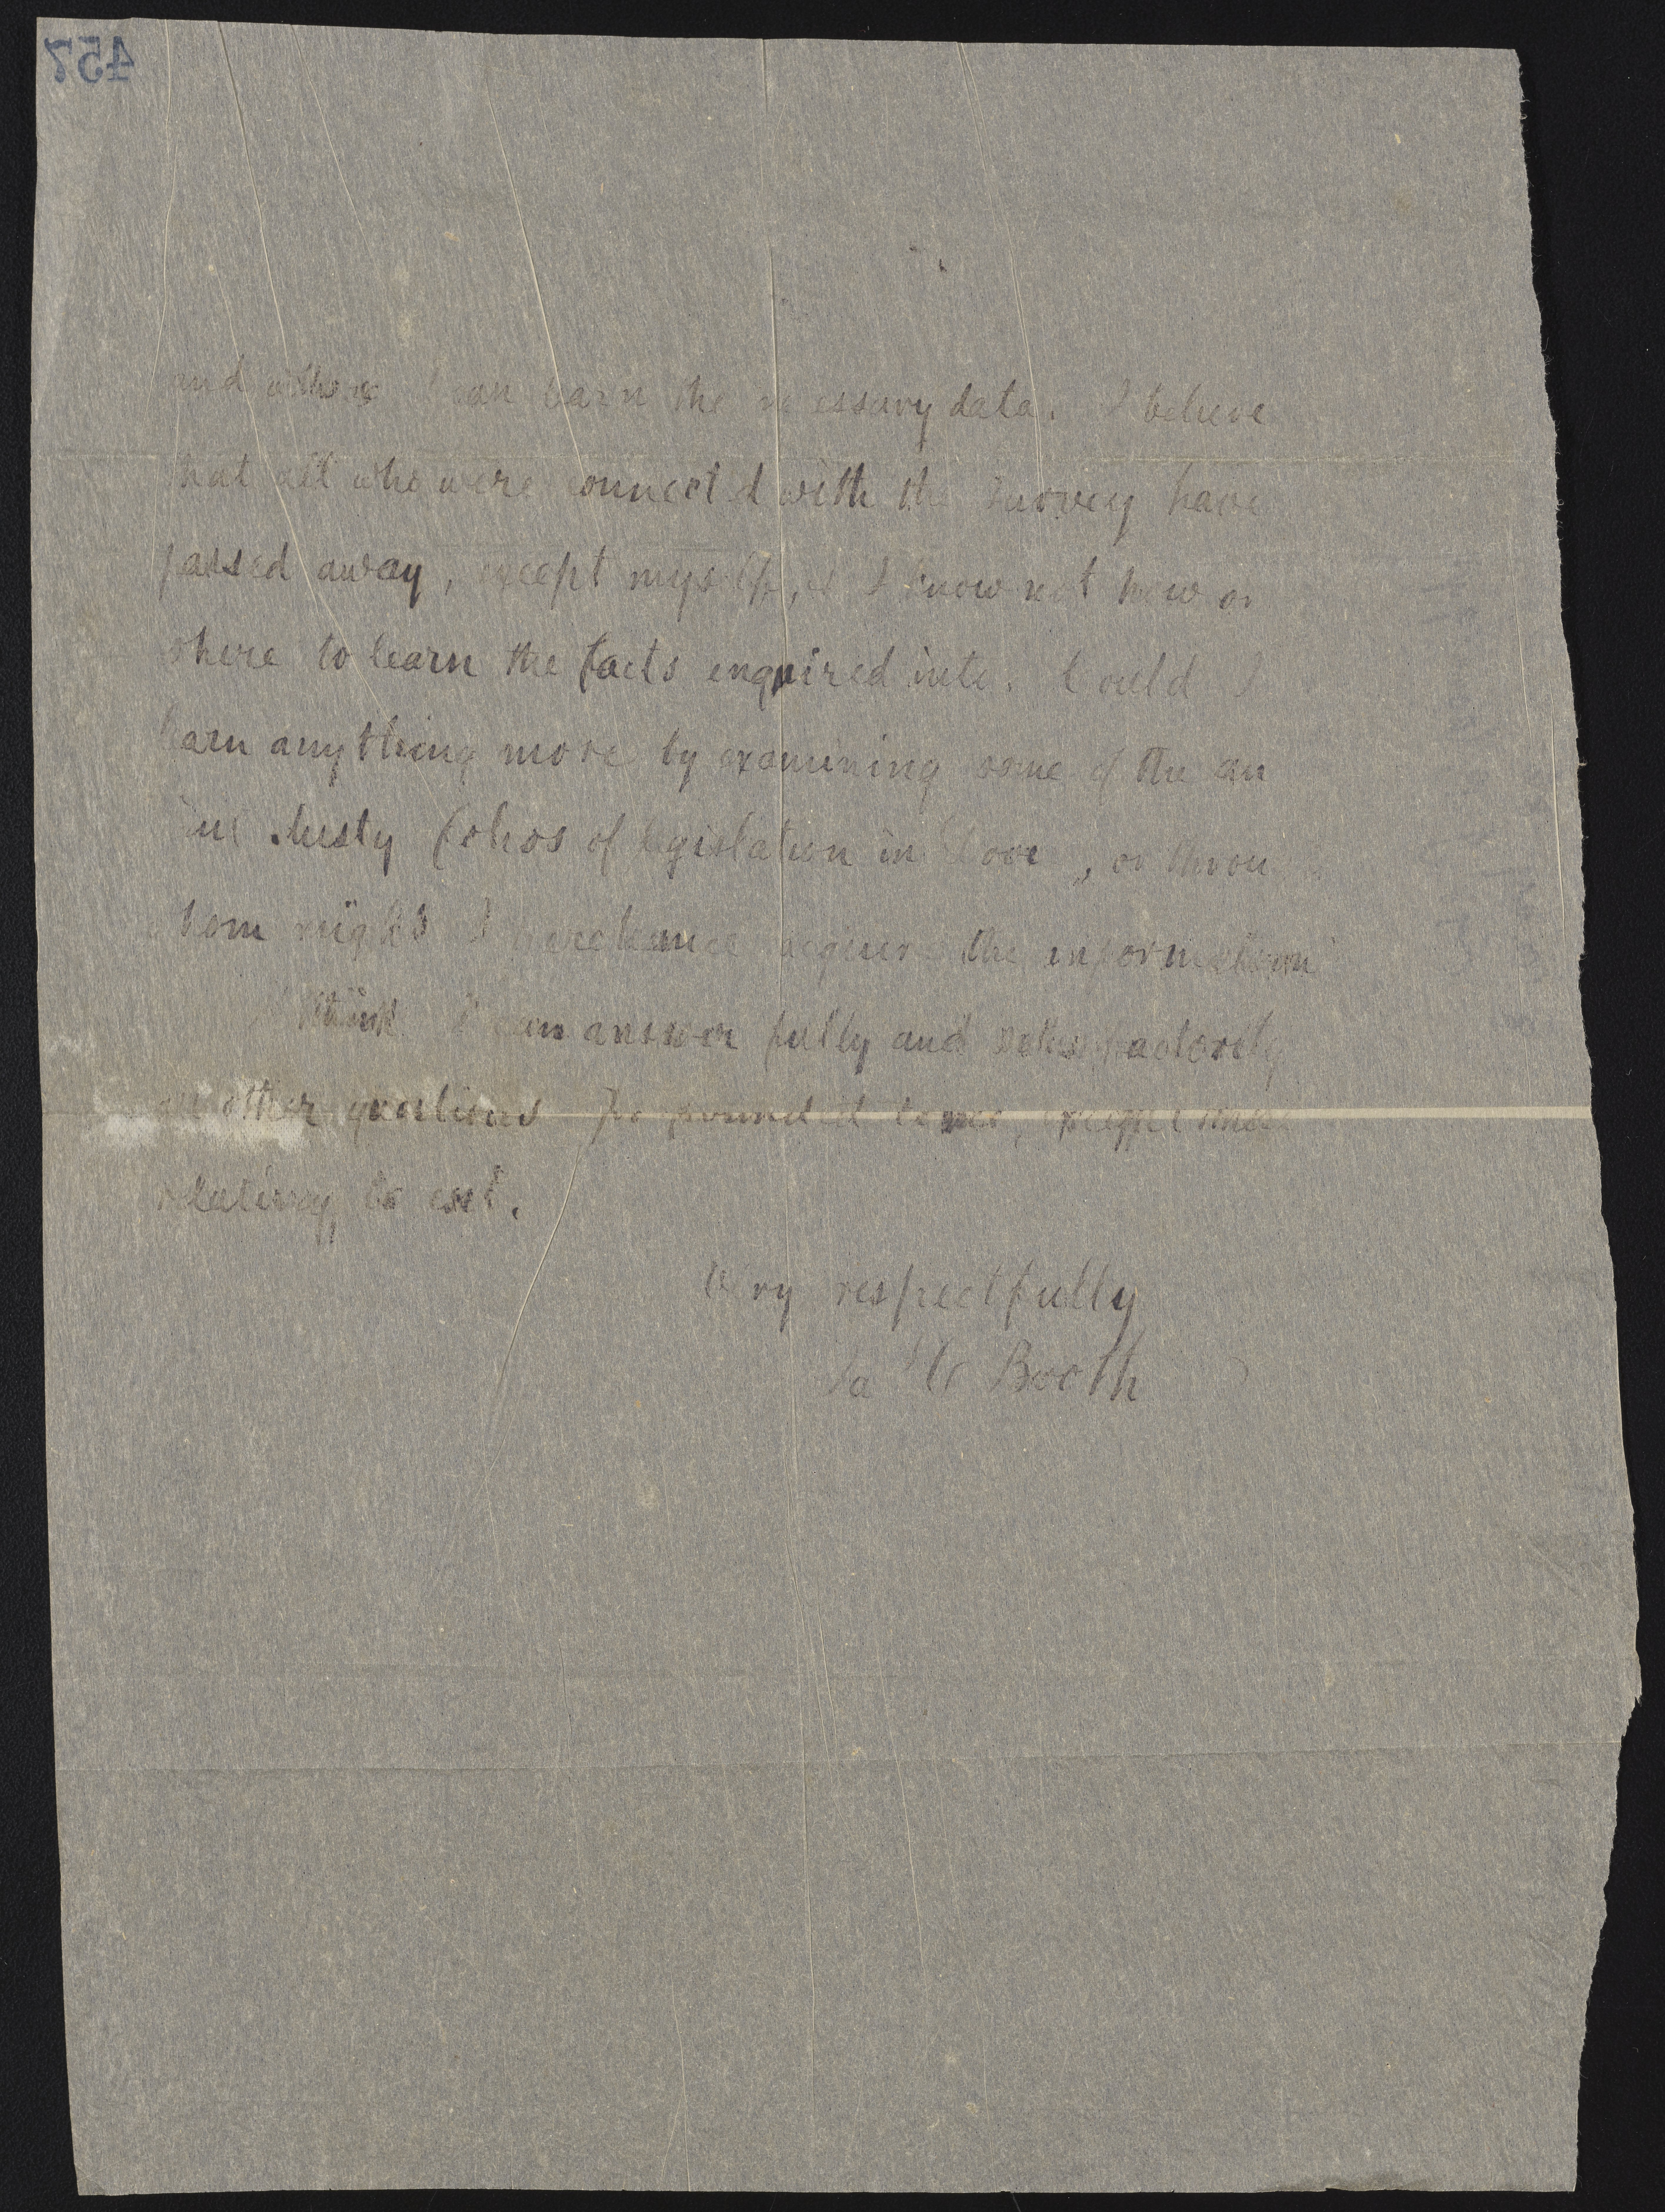 457
and others I can learn the necessary data. I believe
that all who were connected with the survey have
passed away, except myself, & I know not how or
where to learn the facts enquired into. Could I
learn anything more by examining some of the an
dusty folios of legislation in Dover, or throu
whom might I perchance acquire the information
I think I can answer fully and satisfactorily
all other questions propounded to me, except those
relating to cost.
Very respectfully
Ja C Booth